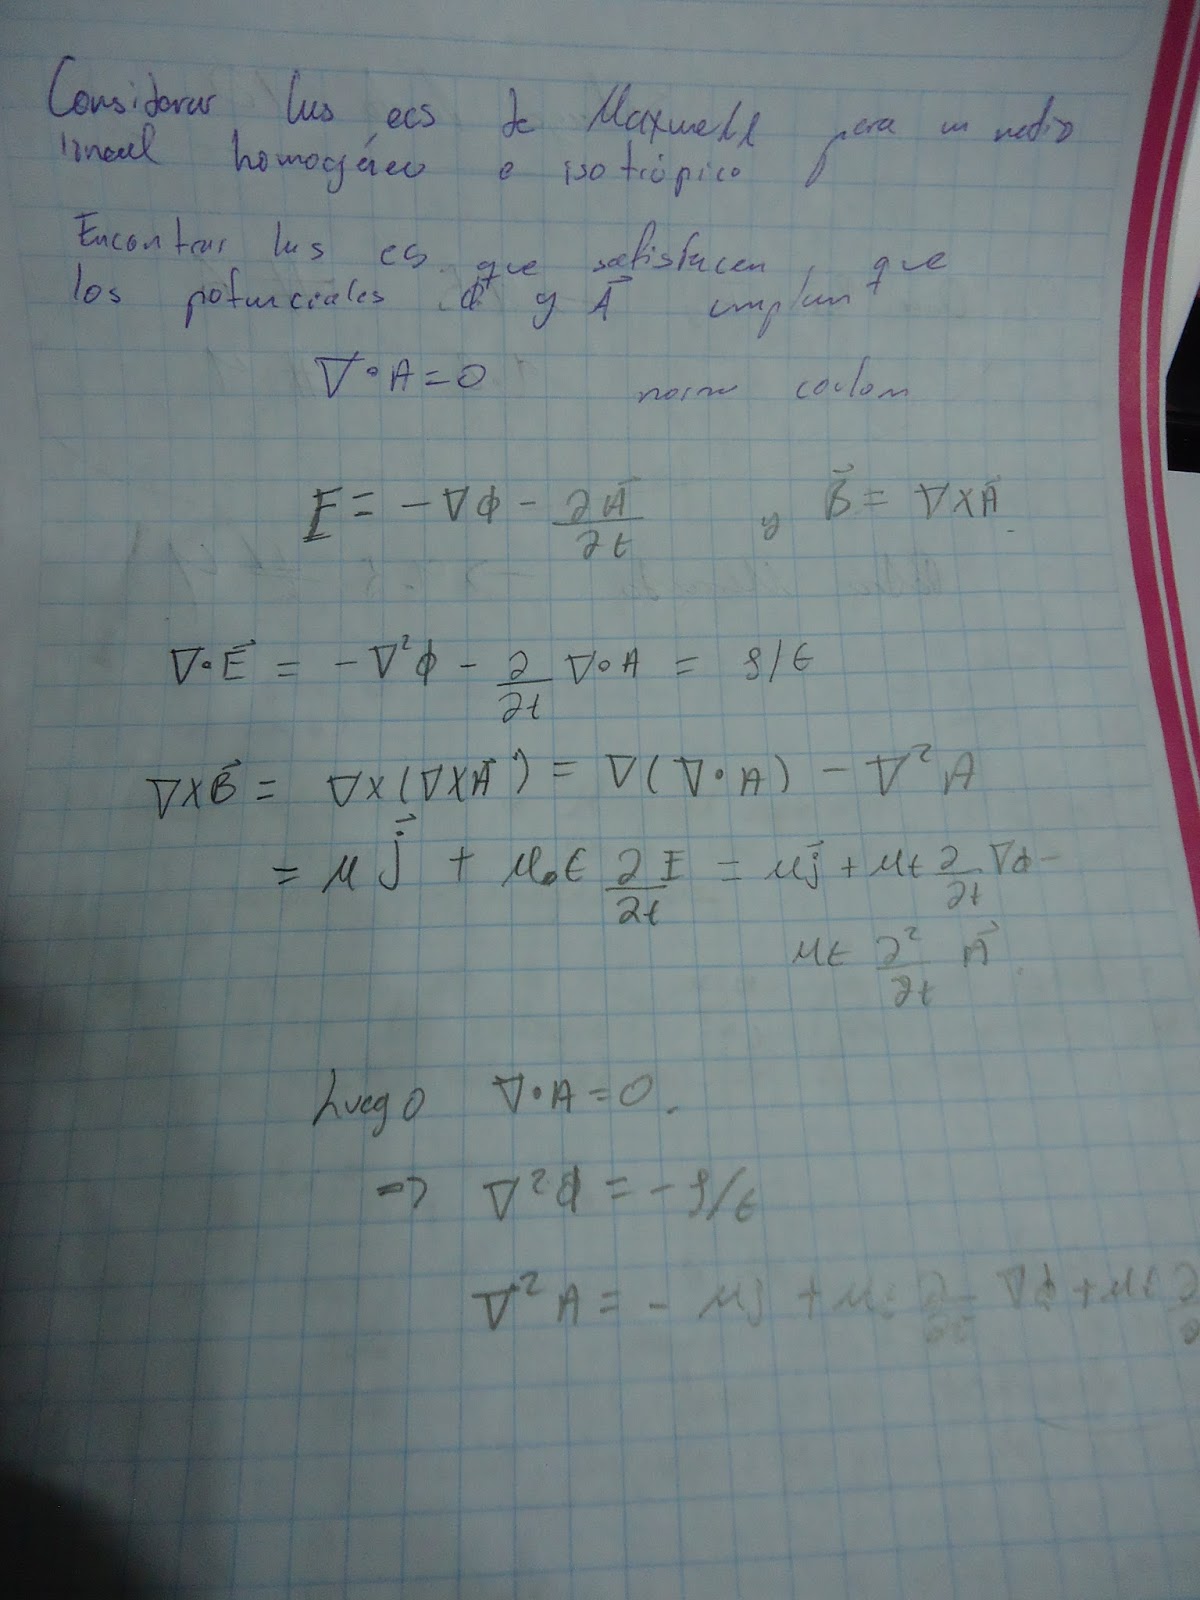 Considerar las ecs de Maxwell para un medio
lineal homogéneo e isotrópico
Encontrar las ecs. que satisfacen, que
los potenciales Φ y A⃗ cumplan
∇•A=0 norm coulom
E = -∇Φ - ∂A⃗/∂t y B⃗ = ∇XA⃗.
∇•E⃗ = -∇²Φ - ∂/∂t ∇•A = ρ/ε
∇XB⃗ = ∇X(∇XA⃗) = ∇(∇•A) - ∇²A
= μ j⃗ + μ₀ε ∂E/∂t = μj⃗ + με ∂/∂t ∇Φ -
με ∂²/∂t A⃗.
Luego ∇•A=0.
=> ∇²Φ = -ρ/ε
∇²A = - μj + με ∂/∂t ∇Φ + με ∂